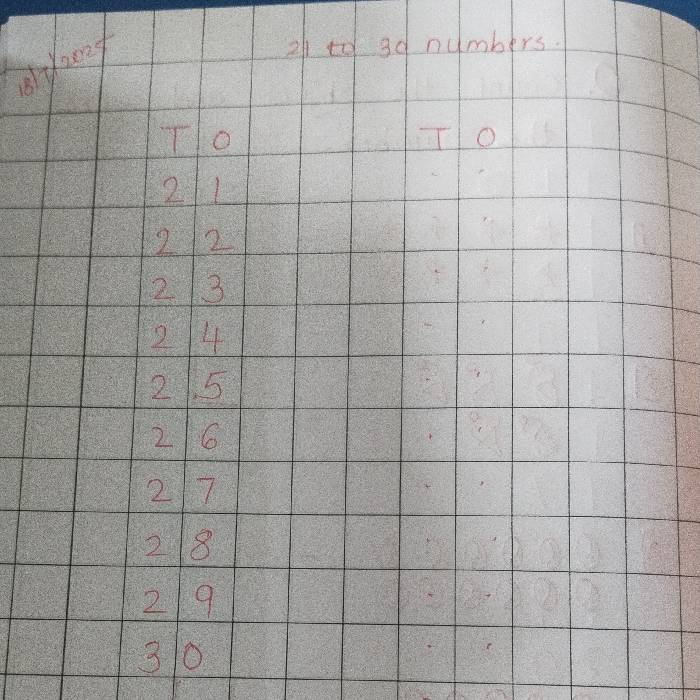 18/7/2025 21 to 30 numbers.
T O T O
2 1
2 2
2 3
2 4
2 5
2 6
2 7
2 8
2 9
3 0